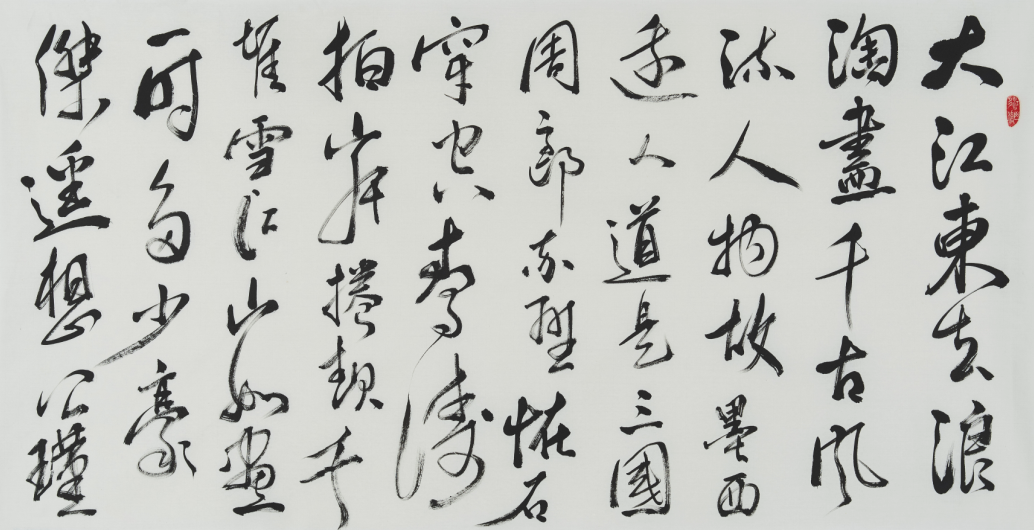 大江東去浪
淘盡千古風
流人物故壘西
邊人道是三國
周郎赤壁恠石
穿空驚濤
拍岸捲起千
堆雪江山如畫
一時多少豪
傑遙想公瑾